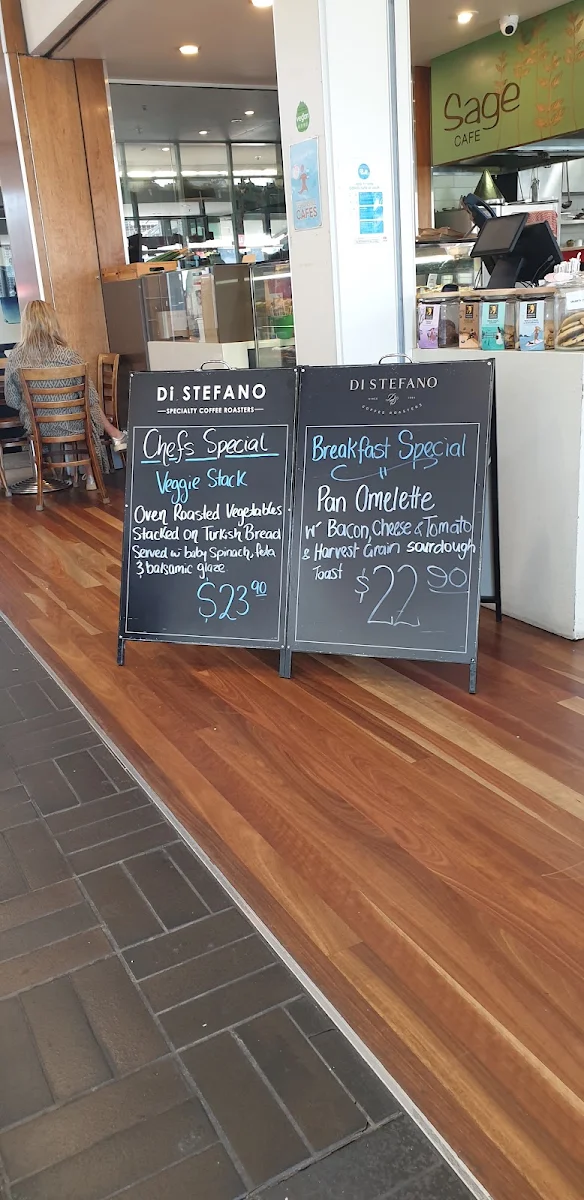 Sage
CAFE
vegan
CAFES
Di STEFANO
SPECIALTY COFFEE ROASTERS
Chefs Special
Veggie Stack
Oven Roasted Vegetables
Stacked on Turkish Bread
Served w baby Spinach, feta
& balsamic glaze
$23 90
Di STEFANO
SINCE
COFFEE ROASTERS
Breakfast Special
Pan Omelette
w' Bacon, Cheese & Tomato
& Harvest Grain sourdough
Toast $22 90